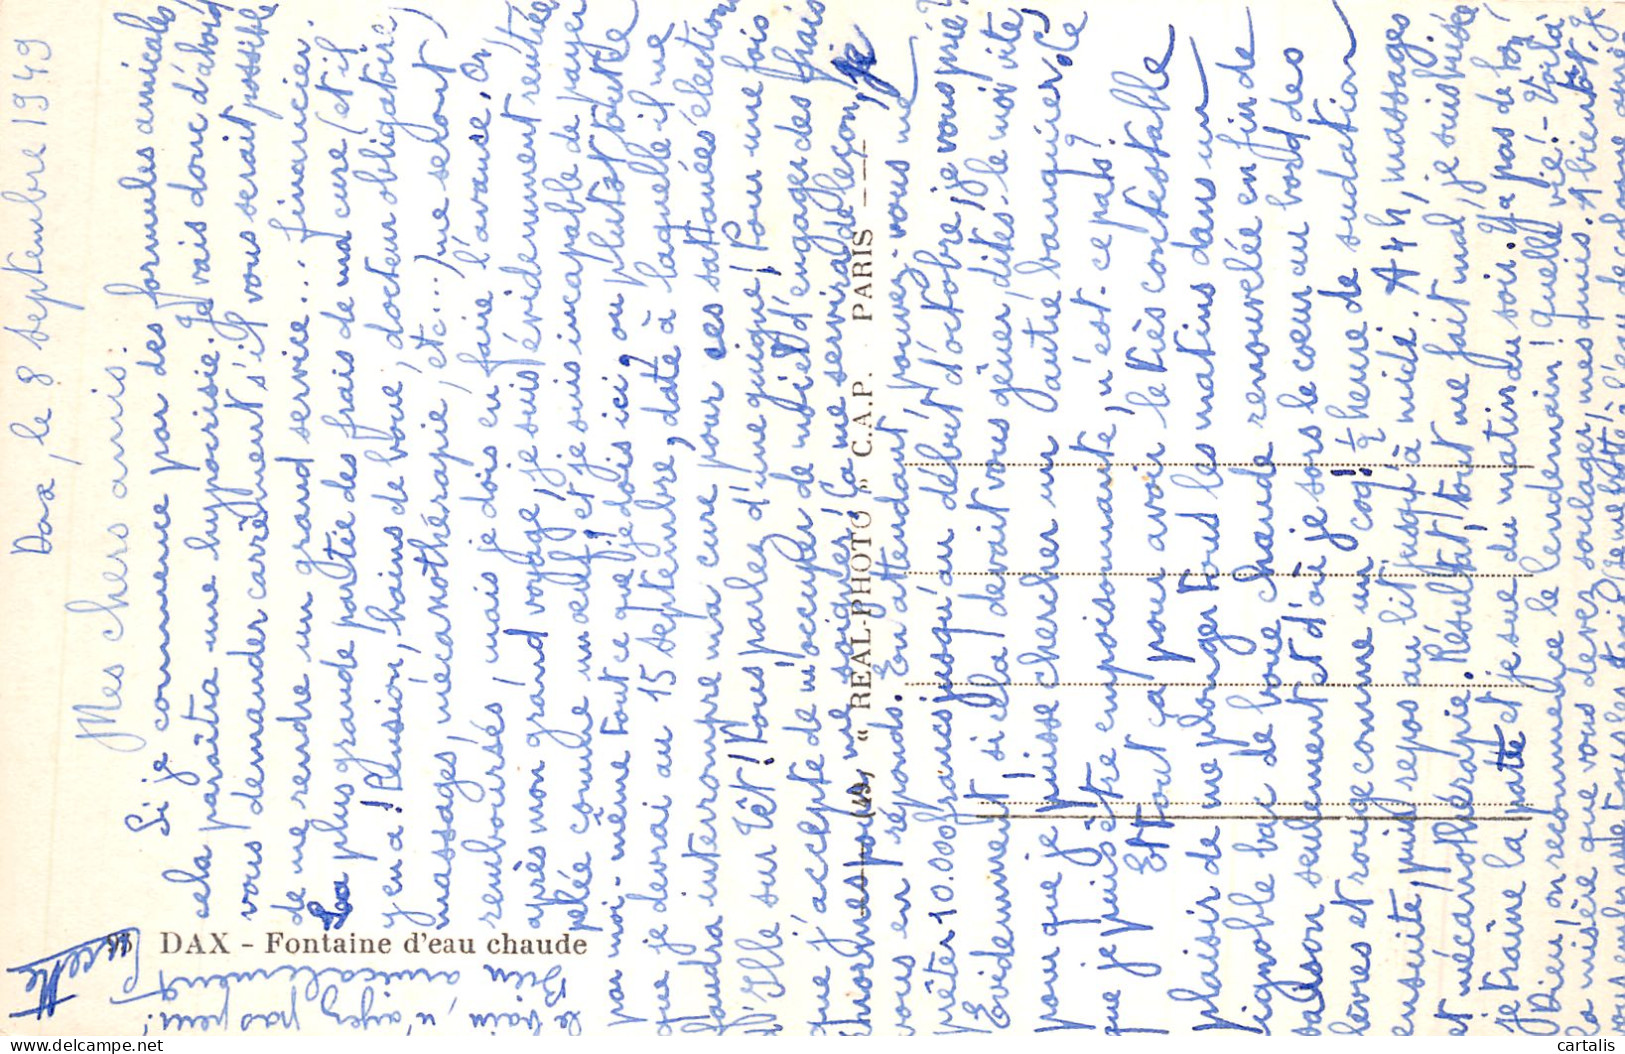 Dax, le 8 septembre 1949
Mes chers amis.
Si je commence par des formules amicales
cela paraîtra une hypocrisie. Je vais donc d'abord
vous demander carrément s'il vous serait possible
de me rendre un grand service... financier
La plus grande partie des frais de ma cure (et il
y en a! Pension, bains de boue, docteur obligatoire,
massages, mécanothérapie, etc...) me seront
remboursés, mais je dois en faire l'avance. Or
après mon grand voyage, je suis évidemment rentrée
plée comme un œuf! et je suis incapable de payer
par moi-même tout ce que je dois ici, ou plutôt tout ce
que je devrai au 15 septembre, date à laquelle il me
faudra interrompre ma cure pour ces sattanées élections
d'Ille sur Têt! Vous parlez d'une guigne! Pour une fois
que j'accepte de m'occuper de moi et d'engager des frais
énormes pour me soigner! Ça me servira de leçon, je
vous en réponds. En attendant, pouvez-vous me
prêter 10.000 francs jusqu'au début d'octobre, je vous prie?
Evidemment si cela devait vous gêner, dites-le moi vite,
pour que je puisse chercher un autre banquier. Ce
que je puis être empoisonnante, n'est-ce pas?
Et tout ça pour avoir le très contestable
plaisir de me plonger tous les matins dans un
ignoble bac de boue chaude renouvelée en fin de
saison seulement et d'où je sors le cœur au bord des
lèvres et rouge comme un coq! ½ heure de sudation
ensuite, puis repos au lit jusqu'à midi. A 4h, massages
et mécanothérapie. Résultat, tout me fait mal, je suis brisée
je traîne la patte et je sue du matin au soir. Il y a pas de bon
Dieu, on recommence le lendemain! quelle vie! - Voilà
la misère que vous devez soulager, mes amis. A bientôt. Je
Bien amicalement
le train, n'ayez pas peur!
Lucette
95 DAX - Fontaine d'eau chaude
« REAL-PHOTO » C.A.P. PARIS
cartalis